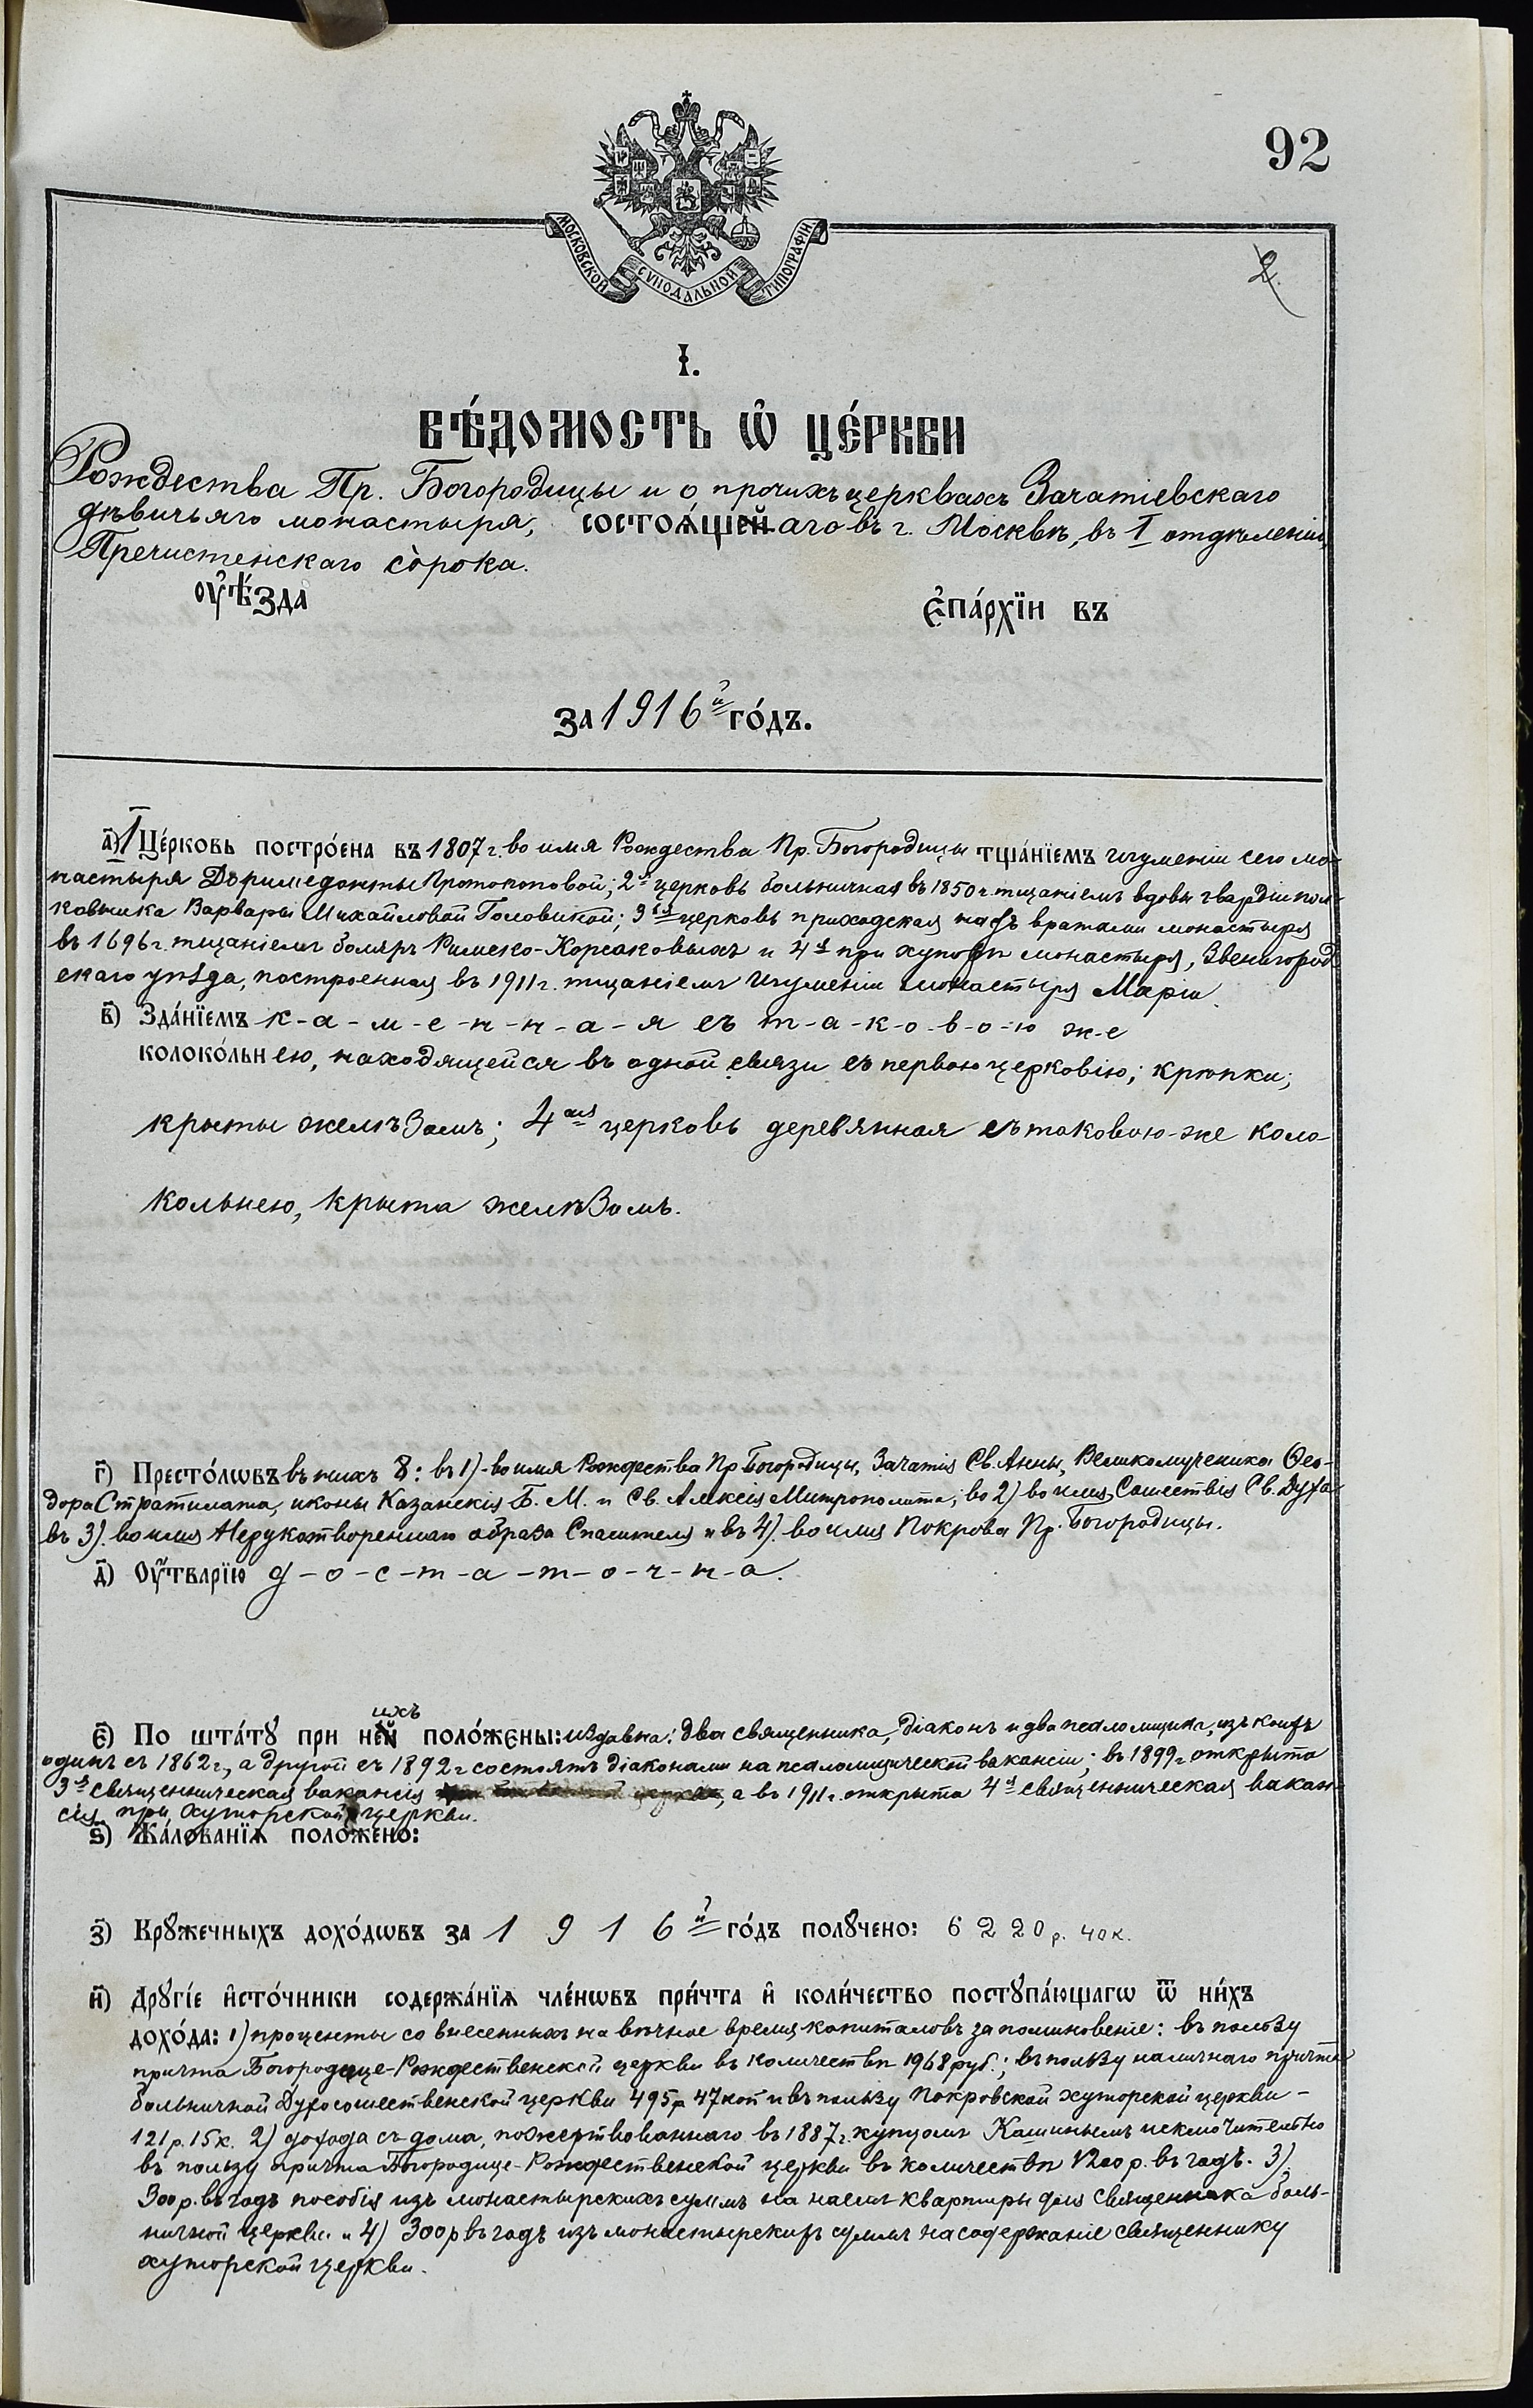 92
МОСКОВСКОЙ СѴНОДАЛЬНОЙ ТИПОГРАФІИ
2.
І.
ВѢ́ДОМОСТЬ Ѡ҆ ЦЕ́РКВИ
Рождества Пр. Богородицы и о прочихъ церквахъ Зачатіевскаго
дѣвичьяго монастыря, состоѧ́щей аго въ г. Москвѣ, въ I отдѣленіи
Пречистенскаго со̀рока.
оу҆ѣ́зда є҆па́рхїи въ
за 1916й го́дъ.
а҃) I Це́рковь постро́ена въ 1807 г. во имя Рождества Пр. Богородицы тща́нїемъ игуменіи сего мо-
настыря Доримедонты Протопоповой; 2я церковь больничная въ 1850 г. тщаніемъ вдовы гвардіи пол-
ковника Варвары Михайловой Головиной; 3ья церковь приходская надъ вратами монастыря
въ 1696 г. тщаніемъ бояръ Римско-Корсаковыхъ и 4я при хуторѣ монастыря, Звенигород
скаго уѣзда, построенная въ 1911 г. тщаніемъ игуменіи монастыря Маріи.
в҃) Зда́нїемъ к-а-м-е-н-н-а-я съ т-а-к-о-в-о-ю ж-е
колоко́льнею, находящейся въ одной связи съ первою церковію; крѣпки;
крыты желѣзомъ; 4ая церковь деревянная съ таковою-же коло-
кольнею, крыта желѣзомъ.
г҃) Престо́лѡвъ въ нихъ 8: въ 1)-во имя Рождества Пр. Богородицы, Зачатія Св. Анны, Великомученика Ѳео-
дора Стратилата, иконы Казанскія Б. М. и Св. Алексія Митрополита; во 2) во имя Сошествія Св. Духа
въ 3). во имя Нерукотвореннаго образа Спасителя и въ 4). во имя Покрова Пр. Богородицы.
д҃) Оу҆́тварїю д-о-с-т-а-т-о-ч-н-а.
є҃) По шта́тꙋ при ней ихъ поло́жєны: издавна: два священника, діаконъ и два псаломщика, изъ коихъ
одинъ съ 1862 г., а другой съ 1892 г состоятъ діаконами на псаломщической вакансіи; въ 1899 г открыта
3я священническая вакансія, а въ 1911 г. открыта 4я священническая вакан-
сія при хуторской церкви.
ѕ҃) Жа́лованїѧ положено:
з҃) Крꙋжечныхъ дохо́дѡвъ за 1 9 1 6й го́дъ полꙋчено: 6 2 2 0 р. 40 к.
и҃) Дрꙋгі́е и҆сто́чники содержа́нїѧ чле́нѡвъ при́чта и҆ коли́чество постꙋпа́ющагѡ ѿ ни́хъ
дохо́да: 1) проценты со внесенныхъ на вѣчное время капиталовъ за поминовеніе: въ пользу
причта Богородице-Рождественской церкви въ количествѣ 1968 руб.; въ пользу наличнаго причта
больничной Духосошественской церкви 495 р 47 коп и въ пользу Покровской хуторской церкви -
121 р. 15 к. 2) дохода съ дома, пожертвованнаго въ 1887 г. купцомъ Кашинымъ исключительно
въ пользу причта Богородице-Рождественской церкви въ количествѣ 1200 р. въ годъ. 3).
300 р. въ годъ пособія изъ монастырскихъ суммъ на наемъ квартиры для священника боль-
ничной церкви и 4) 300 р въ годъ изъ монастырскихъ суммъ на содержаніе священнику
хуторской церкви.